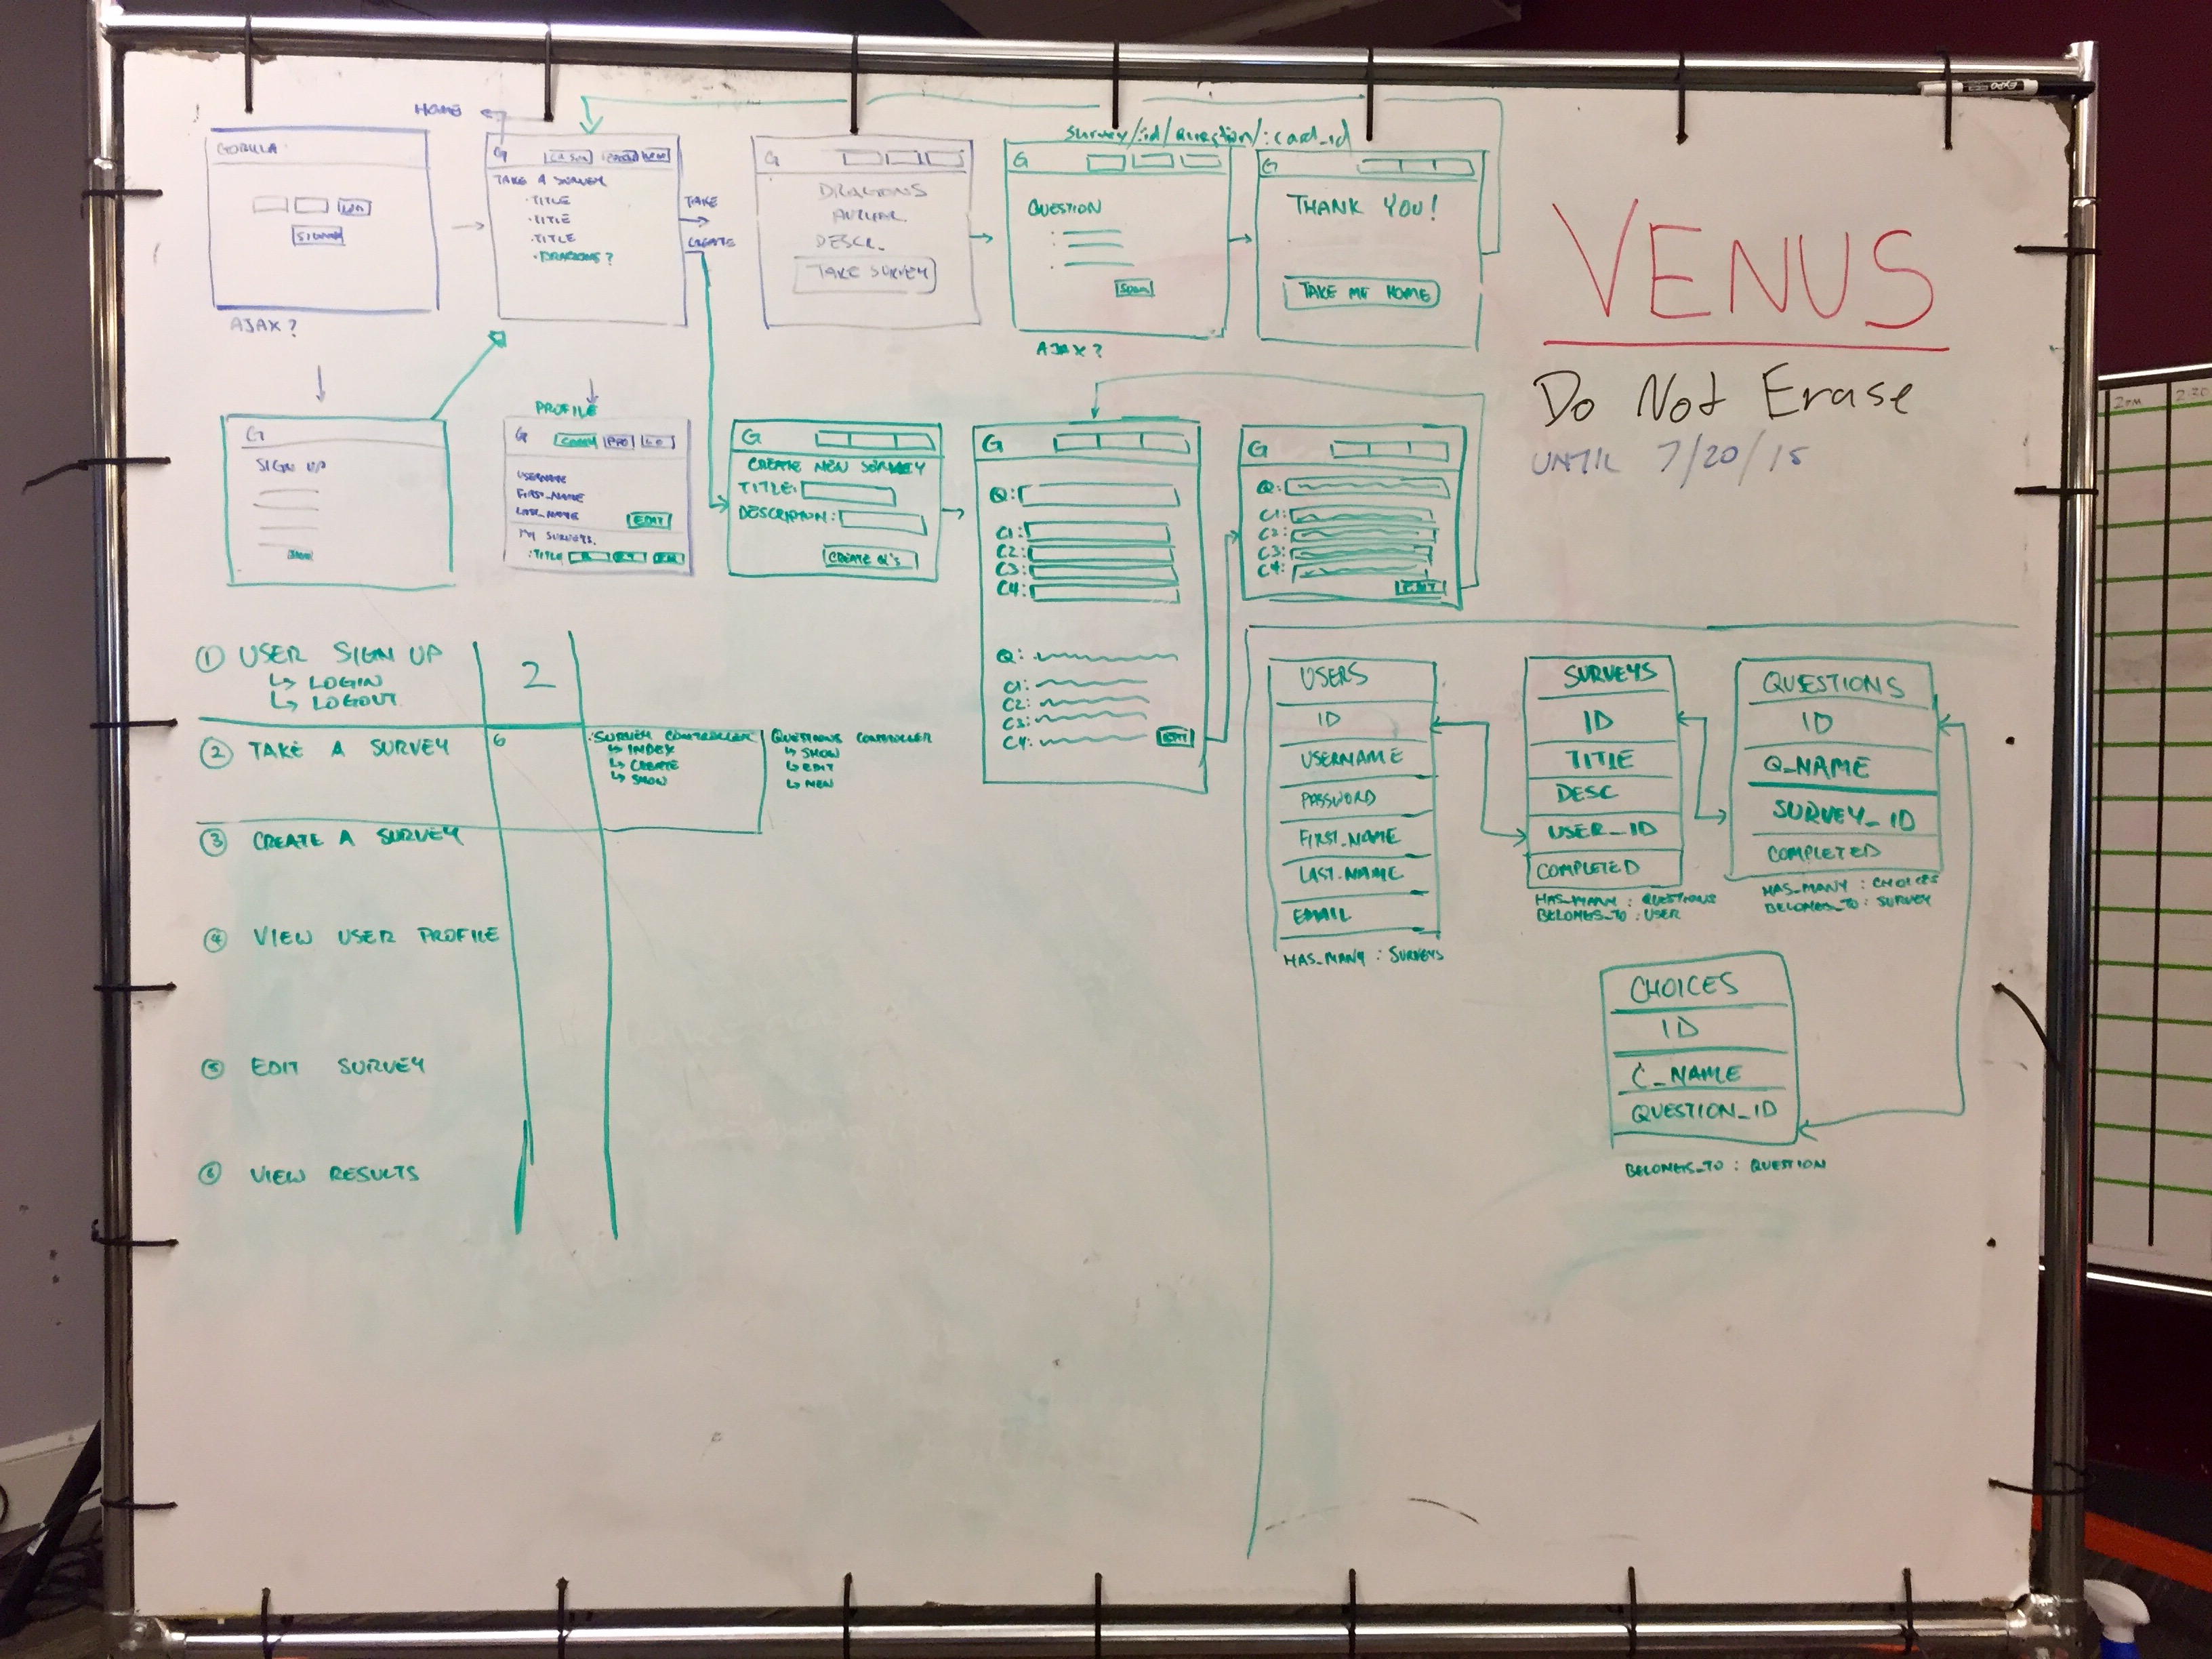 HOME
GORILLA
SIGNUP
AJAX?
G
TAKE A SURVEY
·TITLE
·TITLE
·TITLE
·DRAGONS?
TAKE
CREATE
G
DRAGONS
AUTHOR
DESC.
TAKE SURVEY
survey/:id/question/:card_id
G
QUESTION
AJAX?
G
THANK YOU!
TAKE ME HOME
VENUS
Do Not Erase
UNTIL 7/20/15
EXPO
G
SIGN UP
PROFILE
G
USERNAME
FIRST_NAME
LAST_NAME
EDIT
MY SURVEYS
·TITLE
G
CREATE NEW SURVEY
TITLE:
DESCRIPTION:
CREATE Q's
G
Q:
C1:
C2:
C3:
C4:
Q:
C1:
C2:
C3:
C4:
EDIT
G
Q:
C1:
C2:
C3:
C4:
EDIT
① USER SIGN UP
↳ LOGIN
↳ LOGOUT
2
② TAKE A SURVEY
6
·SURVEY CONTROLLER
↳ INDEX
↳ CREATE
↳ SHOW
QUESTIONS CONTROLLER
↳ SHOW
↳ EDIT
↳ NEW
③ CREATE A SURVEY
④ VIEW USER PROFILE
⑤ EDIT SURVEY
⑥ VIEW RESULTS
USERS
ID
USERNAME
PASSWORD
FIRST_NAME
LAST_NAME
EMAIL
HAS_MANY : SURVEYS
SURVEYS
ID
TITLE
DESC
USER_ID
COMPLETED
HAS_MANY : QUESTIONS
BELONGS_TO : USER
QUESTIONS
ID
Q_NAME
SURVEY_ID
COMPLETED
HAS_MANY : CHOICES
BELONGS_TO : SURVEY
CHOICES
ID
C_NAME
QUESTION_ID
BELONGS_TO : QUESTION
2PM
2:30